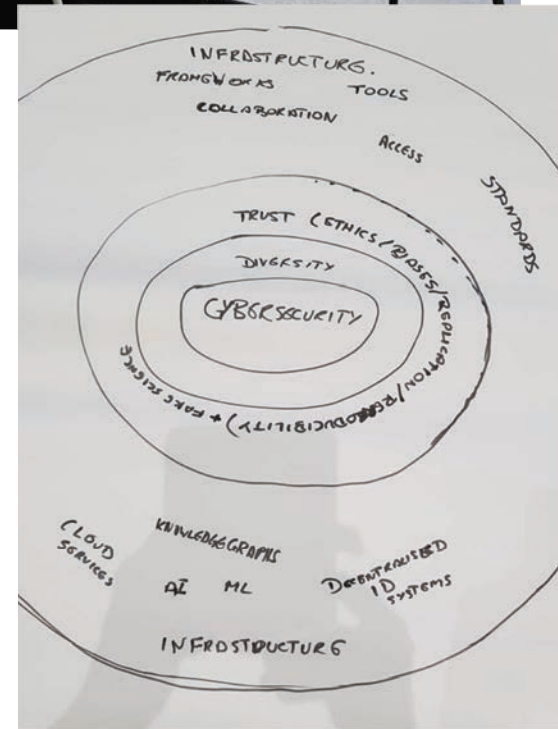 INFRASTRUCTURE.
FRAMEWORKS TOOLS
COLLABORATION
ACCESS
STANDARDS
TRUST (ETHICS/BIASES/REPLICATION/REPRODUCIBILITY) + FAKE SCIENCE
DIVERSITY
CYBERSECURITY
KNOWLEDGEGRAPHS
CLOUD
SERVICES
AI ML
DECENTRALISED
ID
SYSTEMS
INFRASTRUCTURE